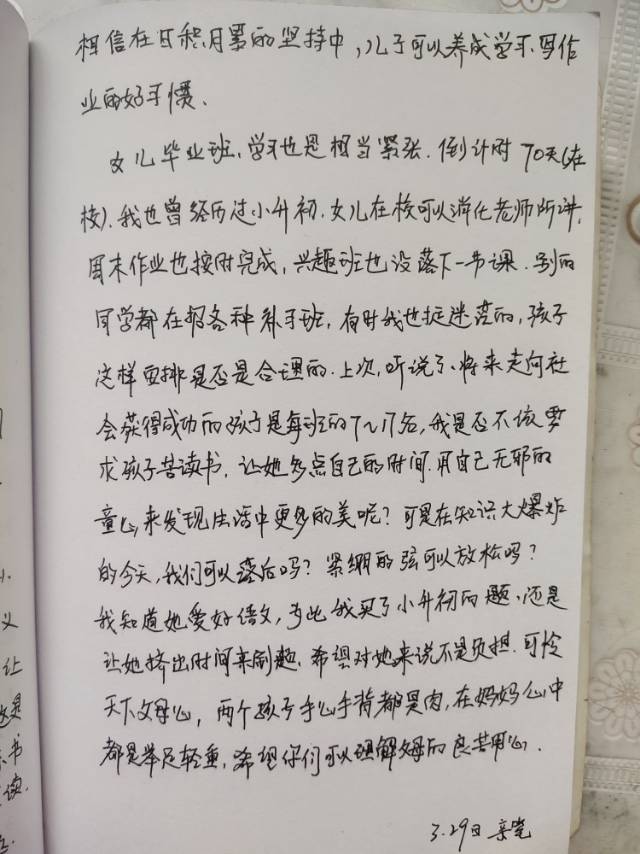 相信在日积月累的坚持中，儿子可以养成学习、写作
业的好习惯．
女儿毕业班，学习也是相当紧张．倒计时70天(在
校)．我也曾经历过小升初，女儿在校可以消化老师所讲，
周末作业也按时完成，兴趣班也没落下一节课．别的
同学都在报各种补习班，有时我也挺迷茫的，孩子
这样安排是否是合理的．上次，听说了、将来走向社
会获得成功的孩子是每班的7～17名，我是否不该要
求孩子苦读书，让她多点自己的时间．用自己无邪的
童心，来发现生活中更多的美呢？可是在知识大爆炸
的今天，我们可以落后吗？紧绷的弦可以放松吗？
我知道她爱好语文，为此我买了小升初的题、还是
让她挤出时间来刷题．希望对她来说不是负担．可怜
天下父母心，两个孩子手心手背都是肉，在妈妈心中
都是举足轻重，希望你们可以理解母的良苦用心．
3.29日
义
让
书
读．